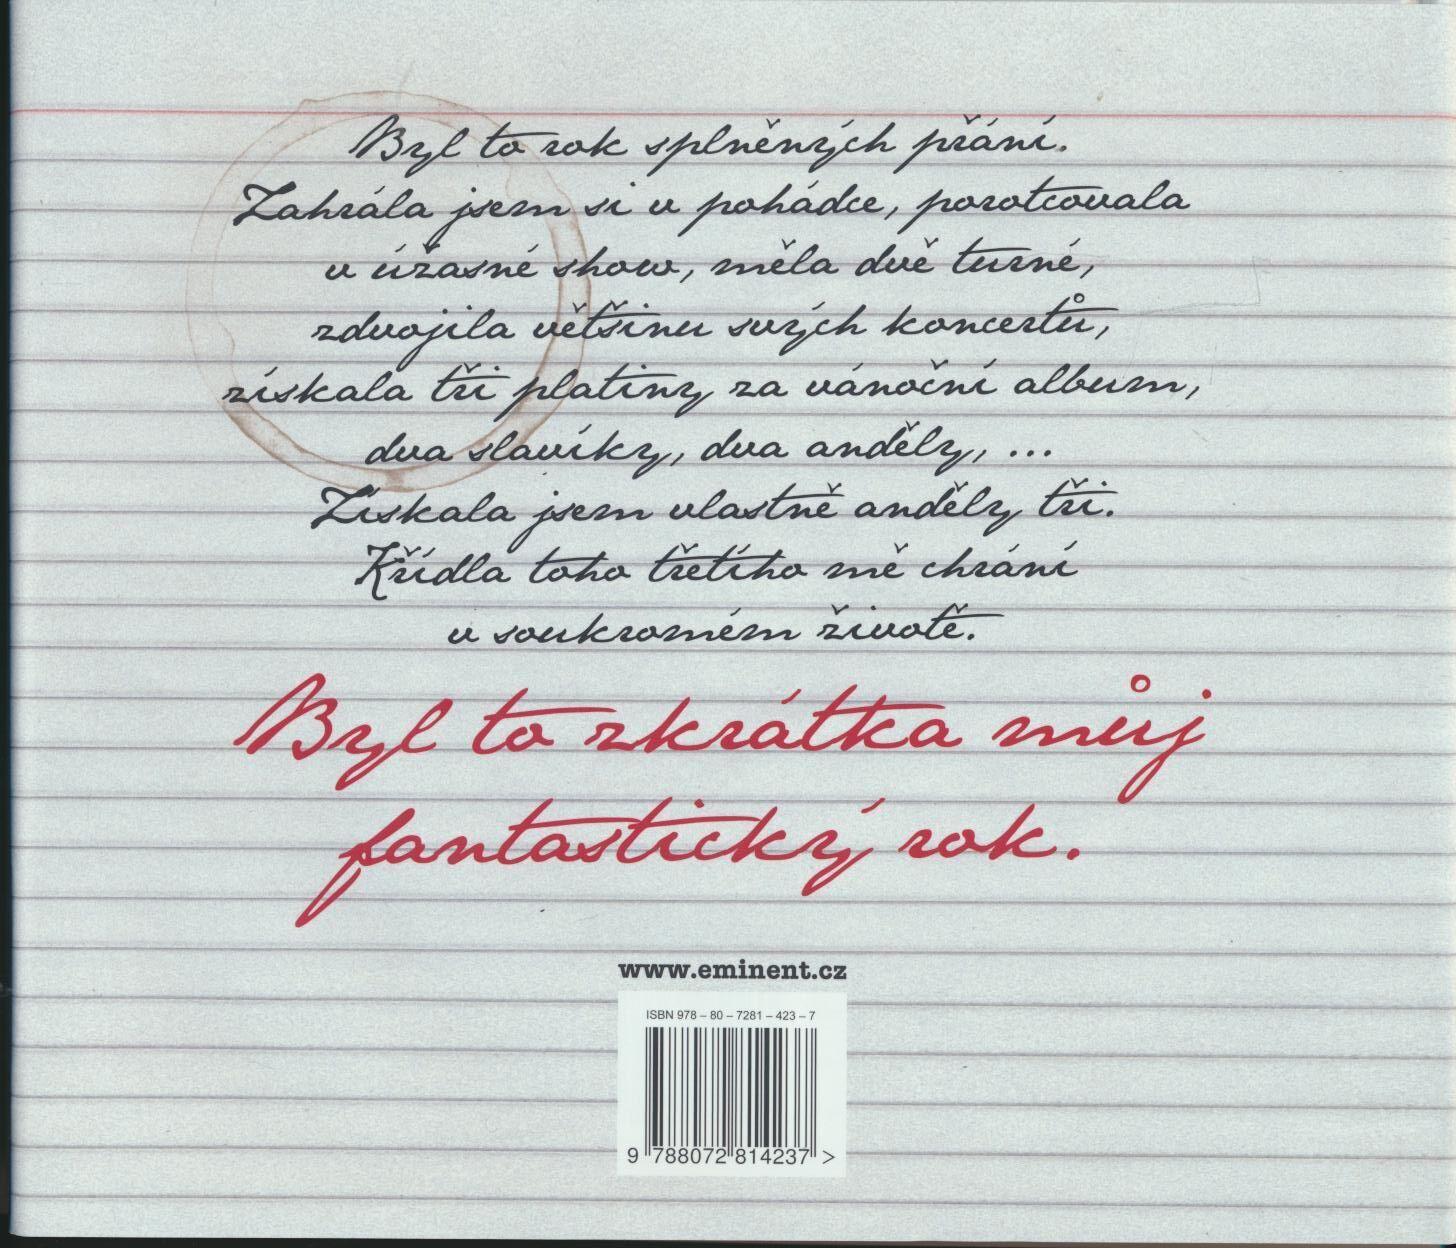 Byl to rok splněných přání.
Zahrála jsem si v pohádce, porotcovala
v úžasné show, měla dvě turné,
zdvojila většinu svých koncertů,
získala tři platiny za vánoční album,
dva slavíky, dva anděly, ...
Získala jsem vlastně anděly tři.
Křídla toho třetího mě chrání
v soukromém životě.
Byl to zkrátka můj
fantastický rok.
www.eminent.cz
ISBN 978 – 80 – 7281 – 423 – 7
9 788072 814237 >